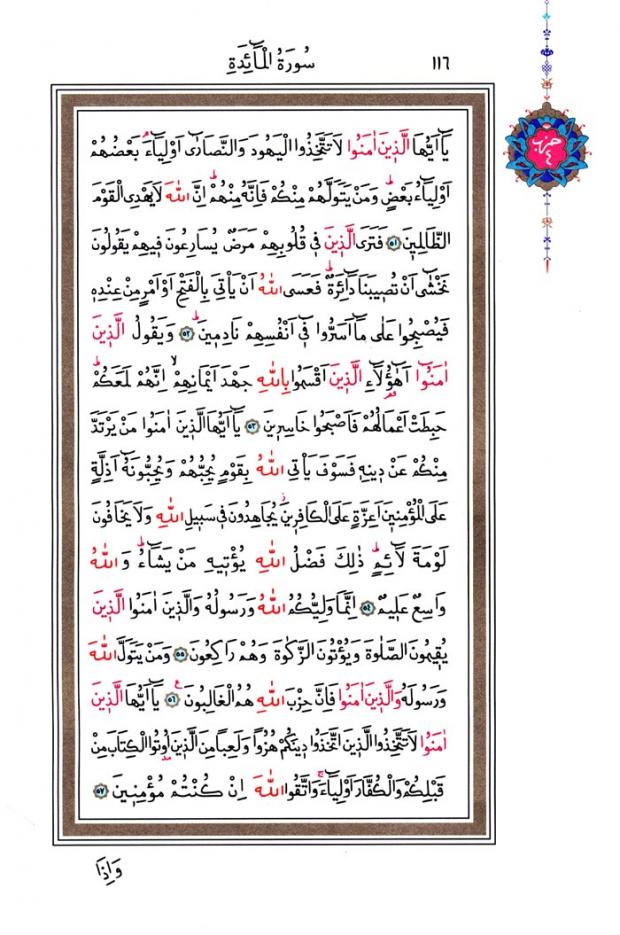 ١١٦
سُورَةُ الْمَٓائِدَةِ
حزب
٤
يَٓا اَيُّهَا الَّذ۪ينَ اٰمَنُوا لَا تَتَّخِذُوا الْيَهُودَ وَالنَّصَارٰٓى اَوْلِيَٓاءَۘ بَعْضُهُمْ
اَوْلِيَٓاءُ بَعْضٍۜ وَمَنْ يَتَوَلَّهُمْ مِنْكُمْ فَاِنَّهُ مِنْهُمْۜ اِنَّ اللّٰهَ لَا يَهْدِي الْقَوْمَ
الظَّالِم۪ينَ ﴿٥١﴾ فَتَرَى الَّذ۪ينَ ف۪ي قُلُوبِهِمْ مَرَضٌ يُسَارِعُونَ ف۪يهِمْ يَقُولُونَ
نَخْشٰٓى اَنْ تُص۪يبَنَا دَٓائِرَةٌۜ فَعَسَى اللّٰهُ اَنْ يَأْتِيَ بِالْفَتْحِ اَوْ اَمْرٍ مِنْ عِنْدِه۪
فَيُصْبِحُوا عَلٰى مَٓا اَسَرُّوا ف۪ٓي اَنْفُسِهِمْ نَادِم۪ينَۜ ﴿٥٢﴾ وَيَقُولُ الَّذ۪ينَ
اٰمَنُٓوا اَهٰٓؤُ۬لَٓاءِ الَّذ۪ينَ اَقْسَمُوا بِاللّٰهِ جَهْدَ اَيْمَانِهِمْۙ اِنَّهُمْ لَمَعَكُمْۜ
حَبِطَتْ اَعْمَالُهُمْ فَاَصْبَحُوا خَاسِر۪ينَ ﴿٥٣﴾ يَٓا اَيُّهَا الَّذ۪ينَ اٰمَنُوا مَنْ يَرْتَدَّ
مِنْكُمْ عَنْ د۪ينِه۪ فَسَوْفَ يَأْتِي اللّٰهُ بِقَوْمٍ يُحِبُّهُمْ وَيُحِبُّونَهُٓ اَذِلَّةٍ
عَلَى الْمُؤْمِن۪ينَ اَعِزَّةٍ عَلَى الْكَافِر۪ينَۘ يُجَاهِدُونَ ف۪ي سَب۪يلِ اللّٰهِ وَلَا يَخَافُونَ
لَوْمَةَ لَٓائِمٍۜ ذٰلِكَ فَضْلُ اللّٰهِ يُؤْت۪يهِ مَنْ يَشَٓاءُۜ وَاللّٰهُ
وَاسِعٌ عَل۪يمٌ ﴿٥٤﴾ اِنَّمَا وَلِيُّكُمُ اللّٰهُ وَرَسُولُهُ وَالَّذ۪ينَ اٰمَنُوا الَّذ۪ينَ
يُق۪يمُونَ الصَّلٰوةَ وَيُؤْتُونَ الزَّكٰوةَ وَهُمْ رَاكِعُونَ ﴿٥٥﴾ وَمَنْ يَتَوَلَّ اللّٰهَ
وَرَسُولَهُ وَالَّذ۪ينَ اٰمَنُوا فَاِنَّ حِزْبَ اللّٰهِ هُمُ الْغَالِبُونَ۟ ﴿٥٦﴾ يَٓا اَيُّهَا الَّذ۪ينَ
اٰمَنُوا لَا تَتَّخِذُوا الَّذ۪ينَ اتَّخَذُوا د۪ينَكُمْ هُزُواً وَلَعِباً مِنَ الَّذ۪ينَ اُو۫تُوا الْكِتَابَ مِنْ
قَبْلِكُمْ وَالْكُفَّارَ اَوْلِيَٓاءَۚ وَاتَّقُوا اللّٰهَ اِنْ كُنْتُمْ مُؤْمِن۪ينَ ﴿٥٧﴾
وَاِذَا